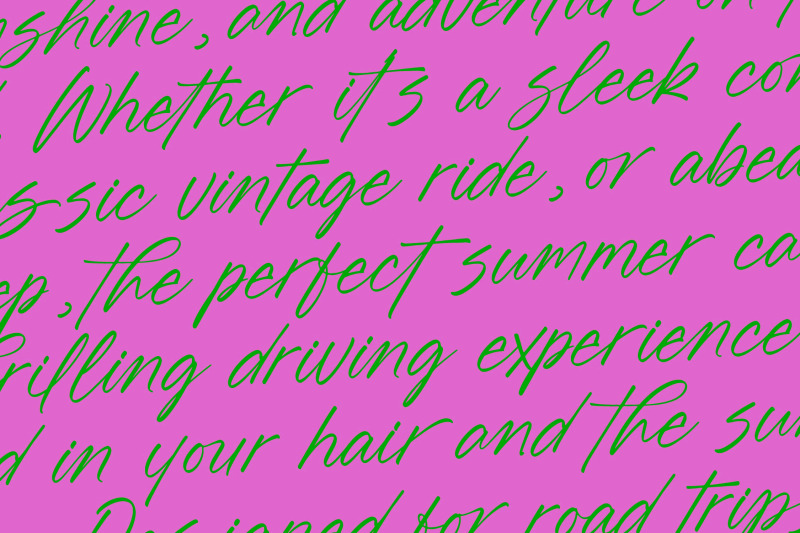 nshine, and adventure on
. Whether it's a sleek con
ssic vintage ride, or a bea
ep, the perfect summer ca
rilling driving experience
d in your hair and the sun
Designed for road trips